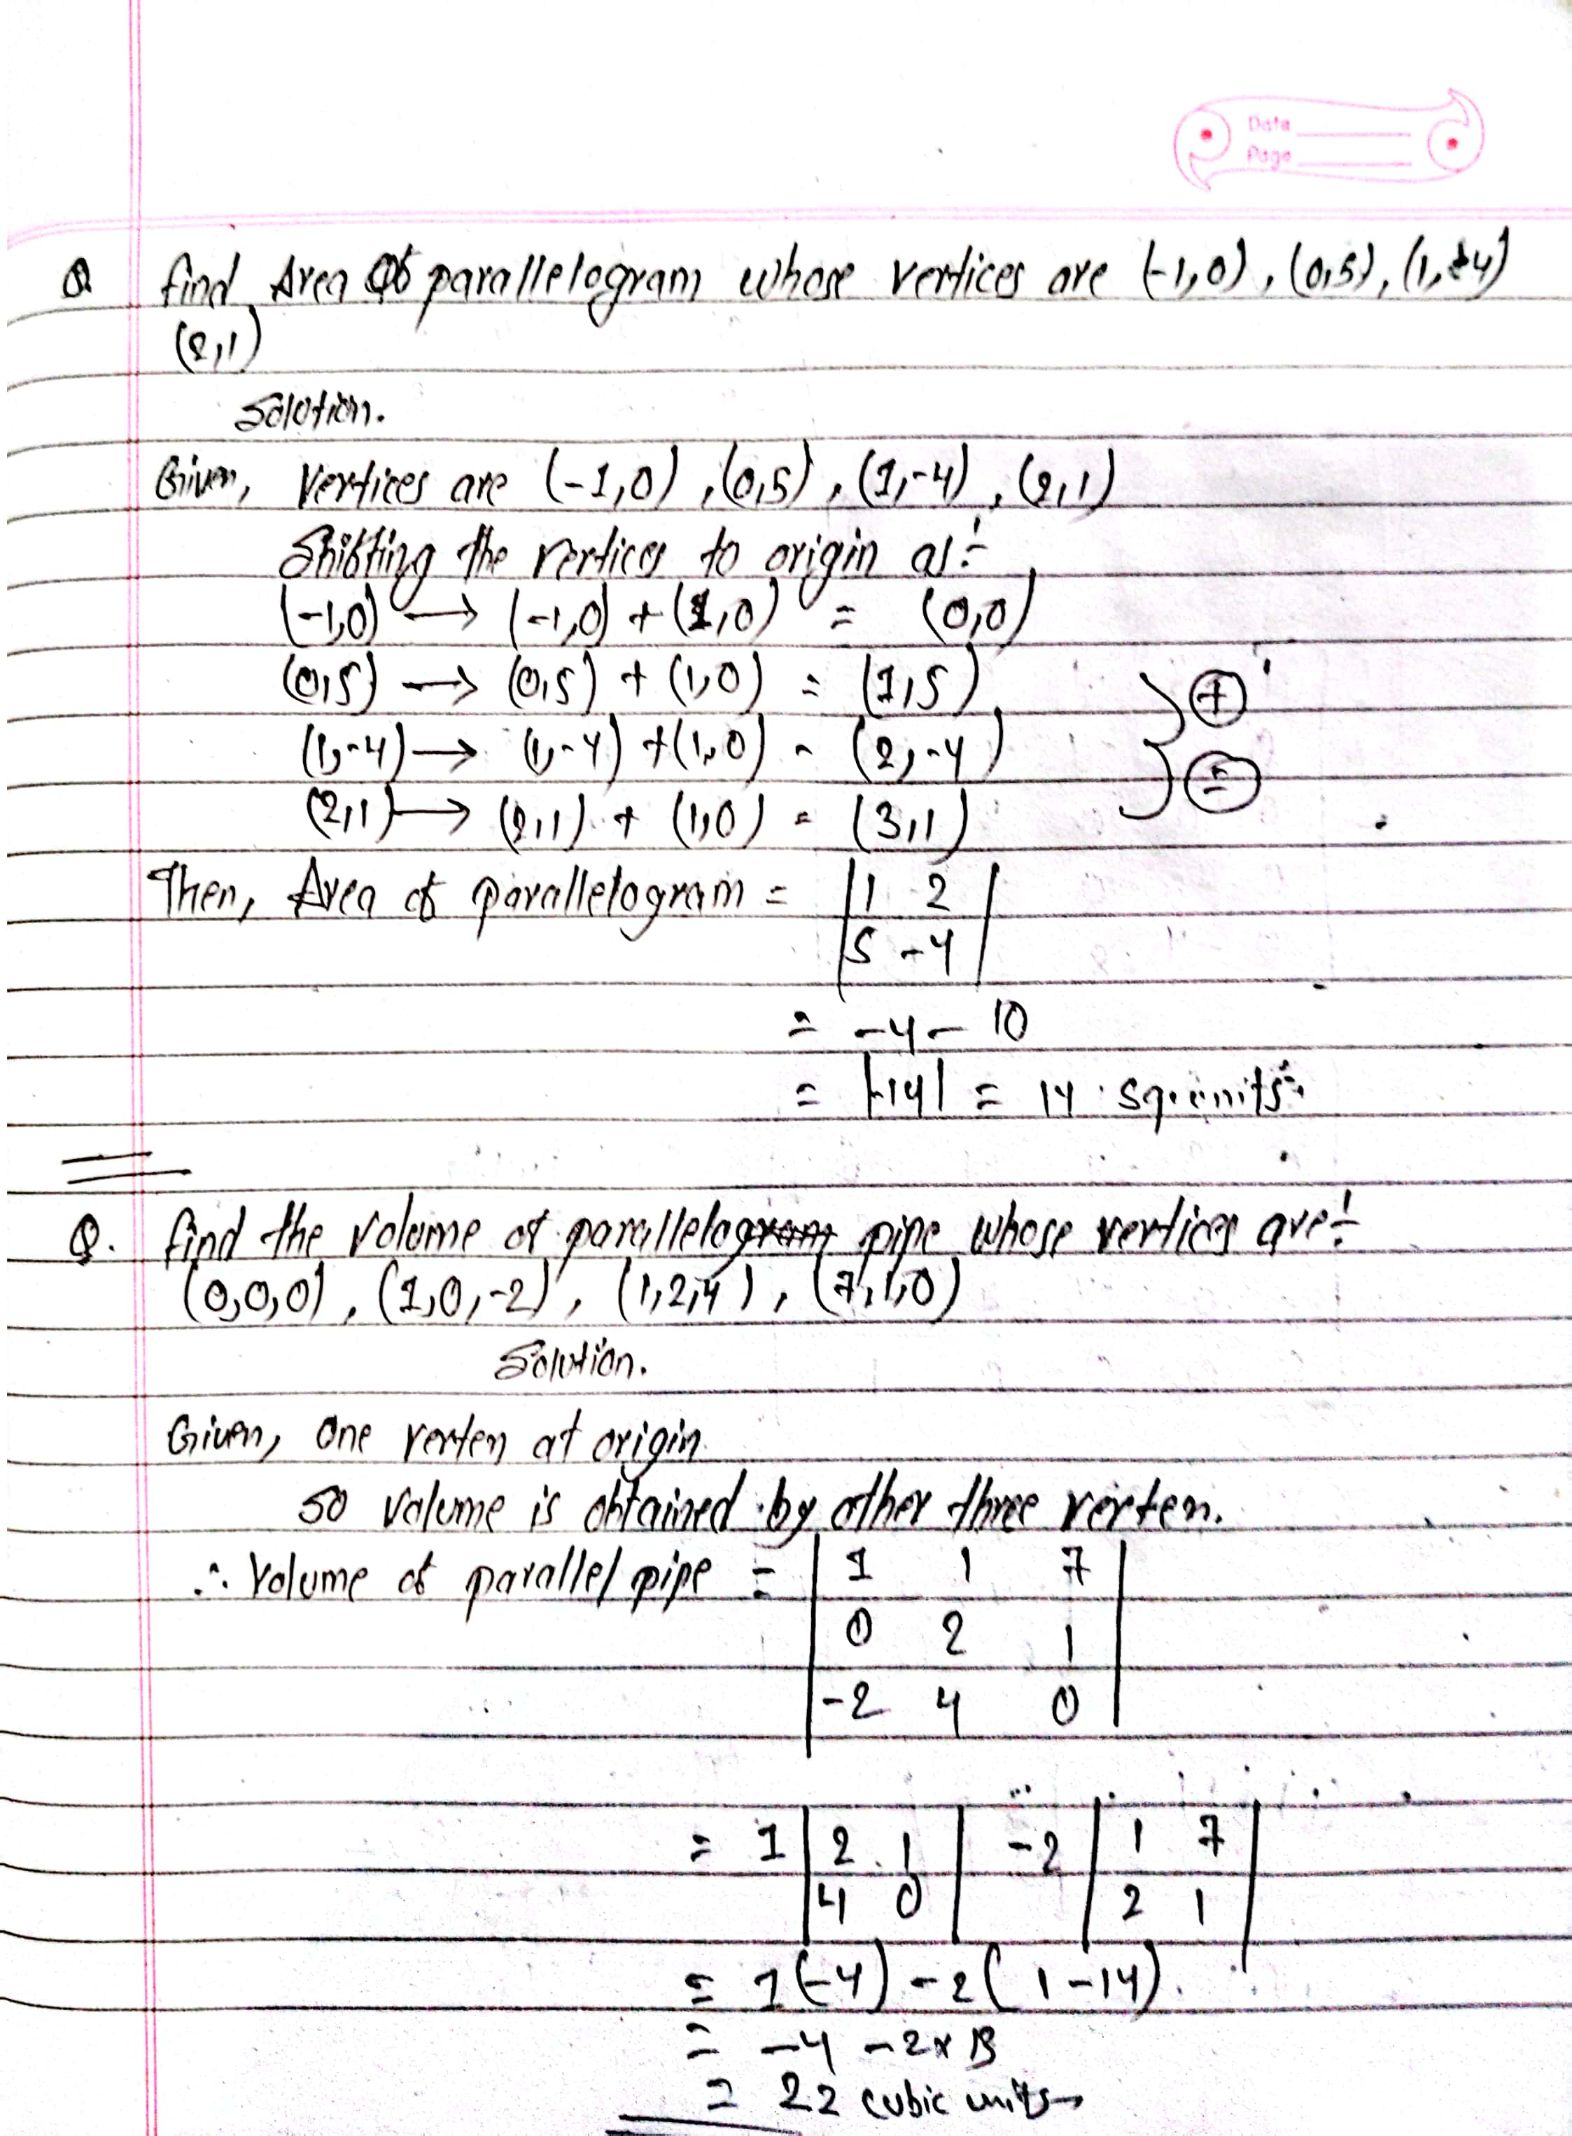 Date
Page
Q find Area Of parallelogram whose vertices are (-1,0), (0,5), (1,-4)
(2,1)
Solution.
Given, Vertices are (-1,0), (0,5), (1,-4), (2,1)
Shifting the vertices to origin as:-
(-1,0) → (-1,0) + (1,0) = (0,0)
(0,5) → (0,5) + (1,0) = (1,5)
(1,-4) → (1,-4) + (1,0) = (2,-4)
(2,1) → (2,1) + (1,0) = (3,1)
+
=
Then, Area of parallelogram = | 1 2 |
| 5 -4 |
= -4 - 10
= |-14| = 14 sq.units.
Q. find the volume of parallelogram pipe whose vertices are:-
(0,0,0), (1,0,-2), (1,2,4), (7,1,0)
Solution.
Given, One verten at origin.
So volume is obtained by other three verten.
∴ Volume of parallel pipe = | 1 1 7 |
| 0 2 1 |
| -2 4 0 |
= 1 | 2 1 | -2 | 1 7 |
| 4 0 | | 2 1 |
= 1(-4) - 2(1-14).
= -4 - 2x13
= 22 cubic units